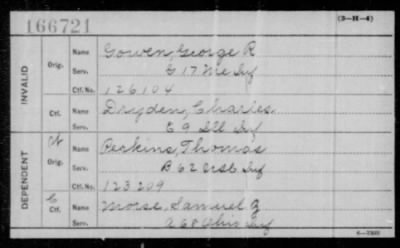 166721
(3-H-4)
INVALID
Orig.
Name Gowen, George R
Serv. G 17 Me Inf
Ctf. No. 126104
Ctf.
Name Dryden, Charles
Serv. E 9 Ill Inf
DEPENDENT
W
Orig.
Name Perkins, Thomas
Serv. B 62 USC Inf
Ctf. No. 123209
C
Ctf.
Name Morse, Samuel
Serv. A 68 Ohio Inf